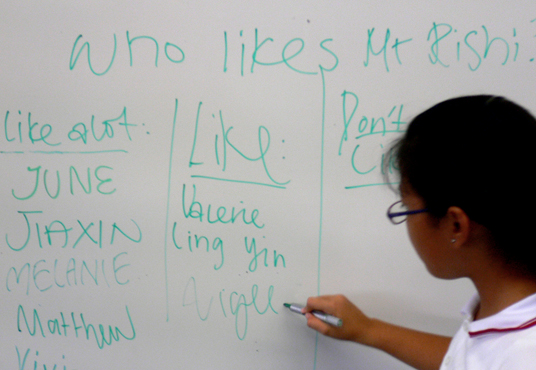 Who likes Mr Rishi?
like alot:
JUNE
JIAXIN
MELANIE
Matthew
Vivi
Like:
Valerie
Ling Yin
Don't